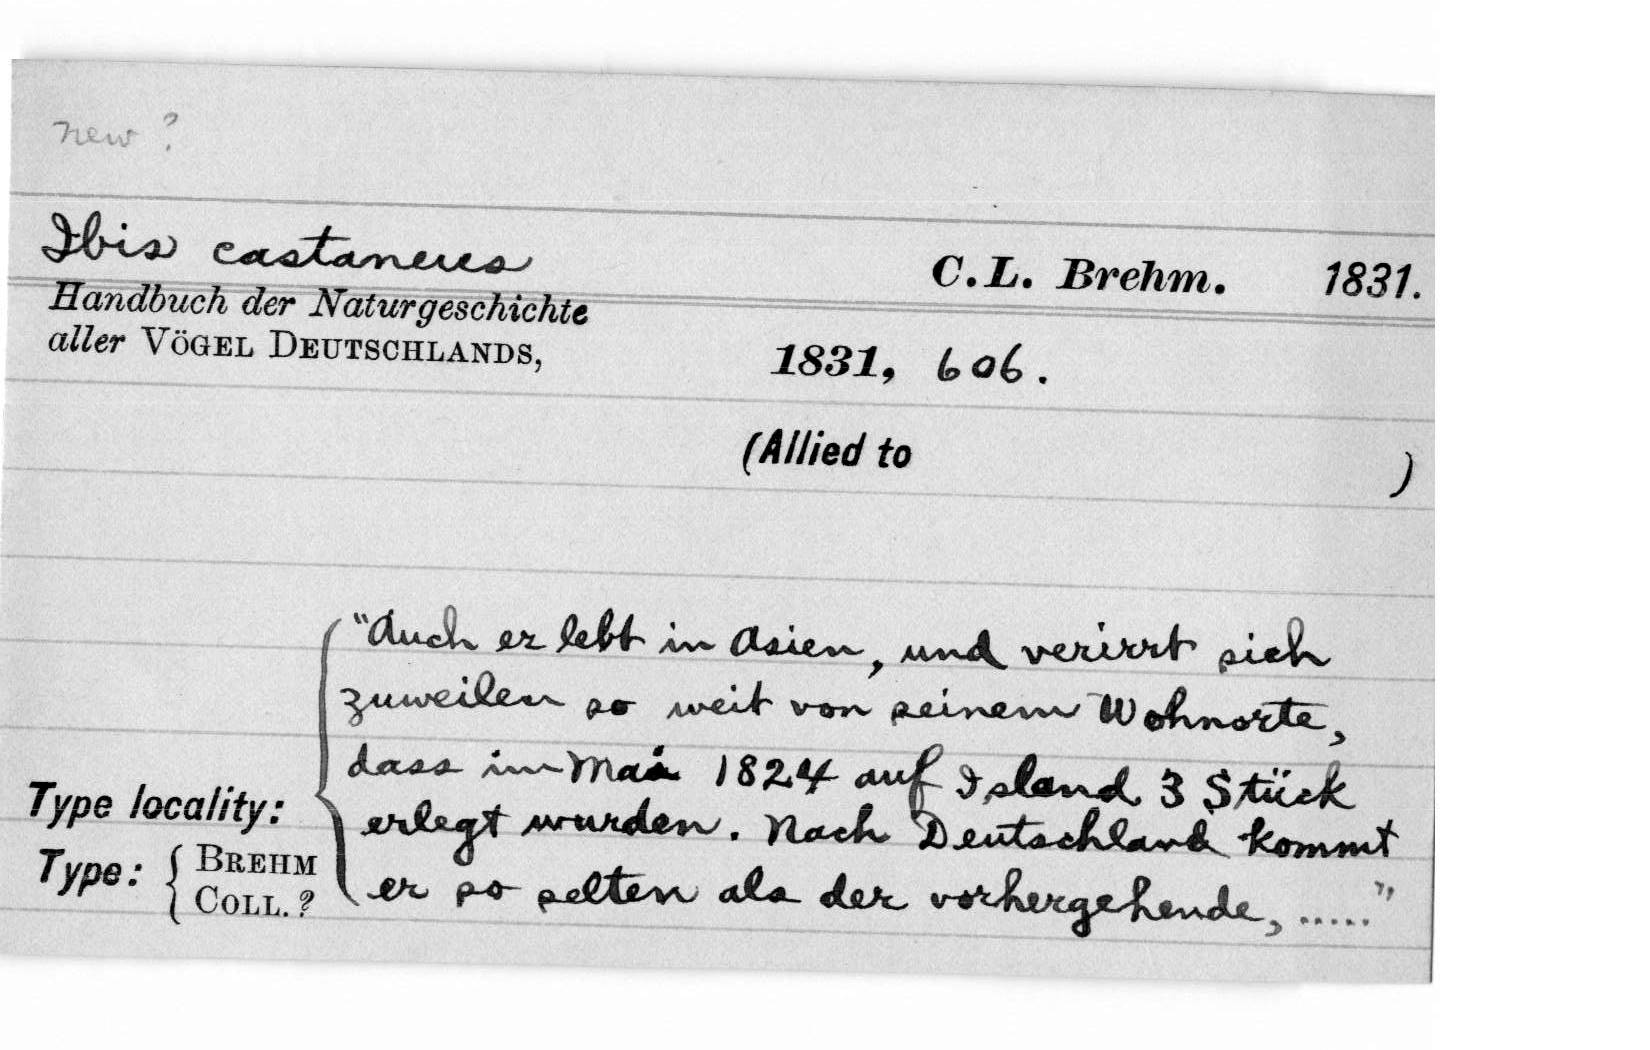 new ?
Ibis castaneus C.L. Brehm. 1831.
Handbuch der Naturgeschichte
aller VÖGEL DEUTSCHLANDS, 1831, 606.
(Allied to )
"Auch er lebt in Asien, und verirrt sich
zuweilen so weit von seinem Wohnorte,
dass im Mai 1824 auf Island 3 Stück
Type locality: erlegt wurden. Nach Deutschland kommt
Type: { BREHM COLL. ? er so selten als der vorhergehende, ....."